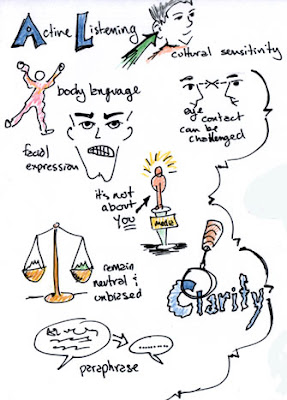 Active Listening
cultural sensitivity
body language
eye
contact
can be
challenged
facial
expression
it's not
about
you
me
remain
neutral &
unbiased
Clarity
paraphrase